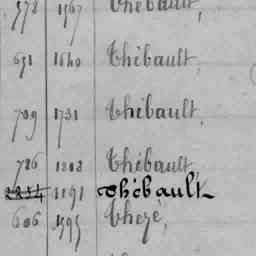 578 1567 Thébault,
651 1640 Thébault,
709 1731 Thébault,
726 1202 Thébault,
2234 1191 Thébault
606 1595 Thezé,